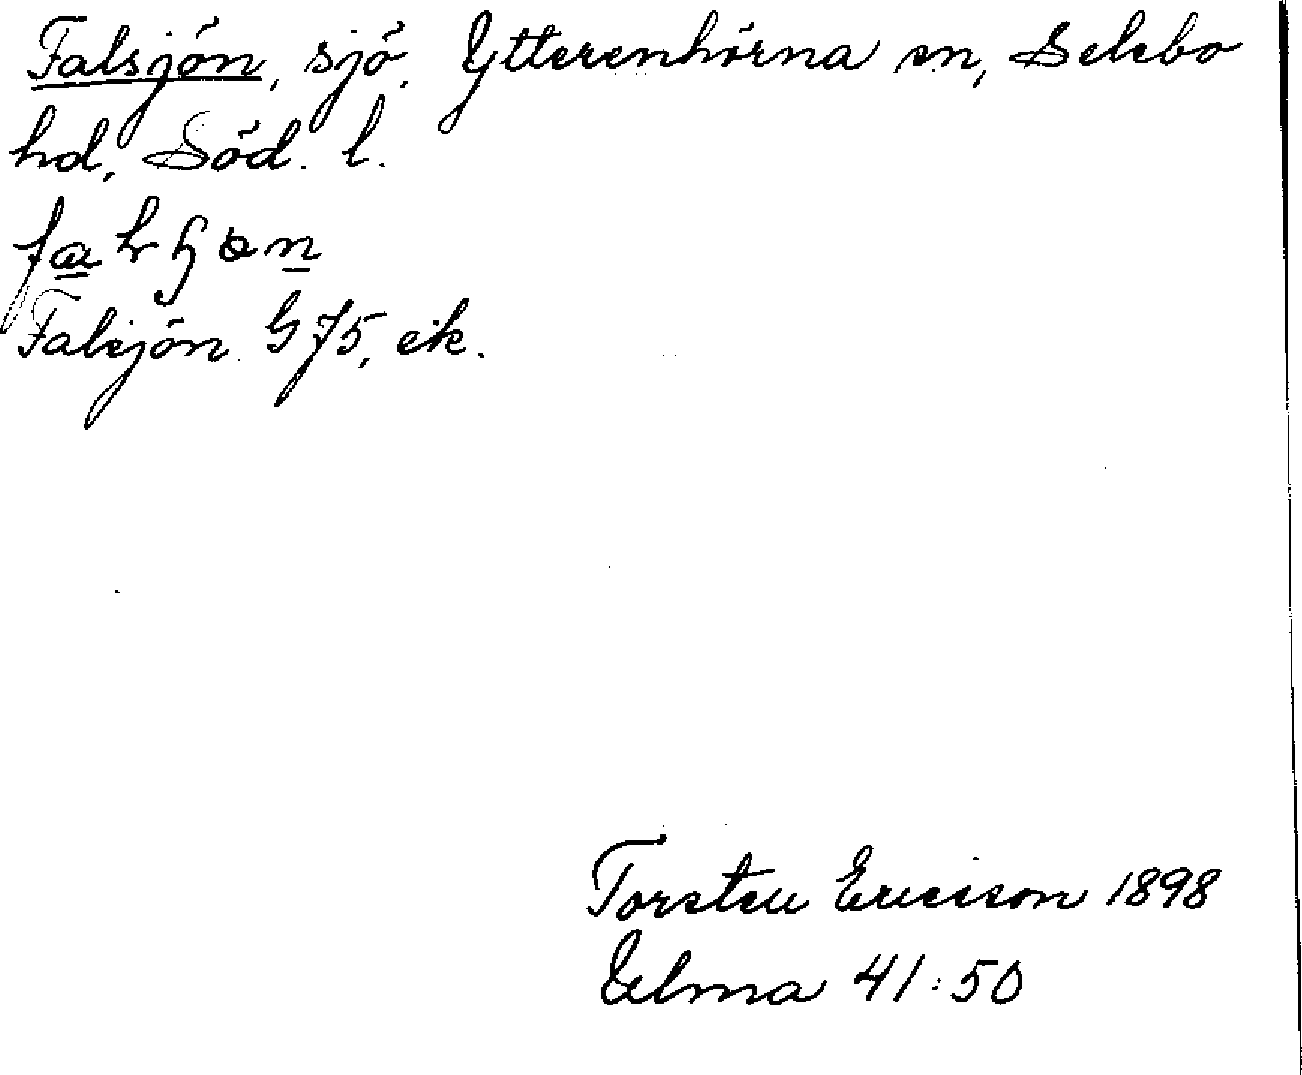 Falsjön, sjö, Ytterenhörna sn, Selebo
hd, Söd. l.
Falsjön. G 75, ek.
Torsten Ericson 1898
Elma 41:50